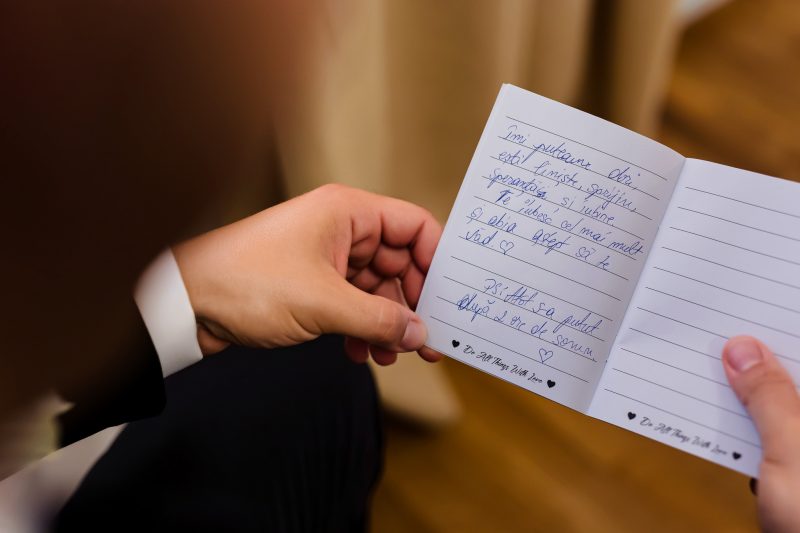 Îmi puteam dori,
ești liniște, sprijin,
speranță și iubire.
Te iubesc cel mai mult
și abia aștept să te
văd. ♡
PS: Atât s-a putut
după 2 ore de somn.
♡
♥ Do All Things With Love ♥
♥ Do All Things With Love ♥